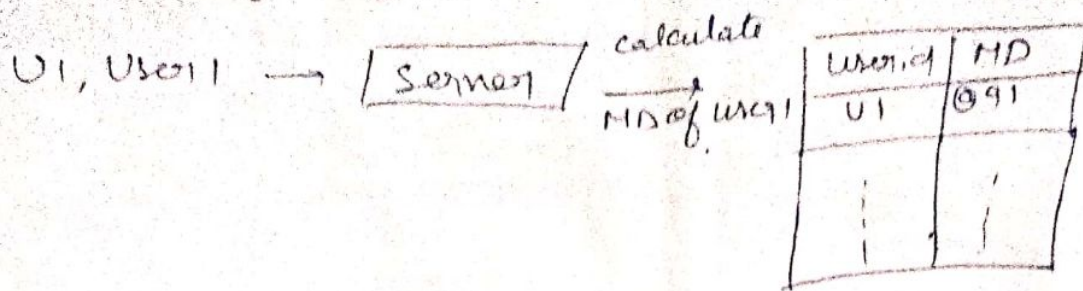 U1, User1 → Server
calculate
MD of user1
user.id MD
U1 @91